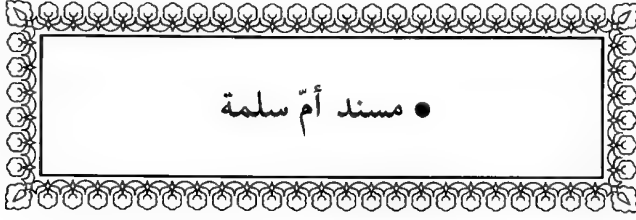 ● مسند أمّ سلمة